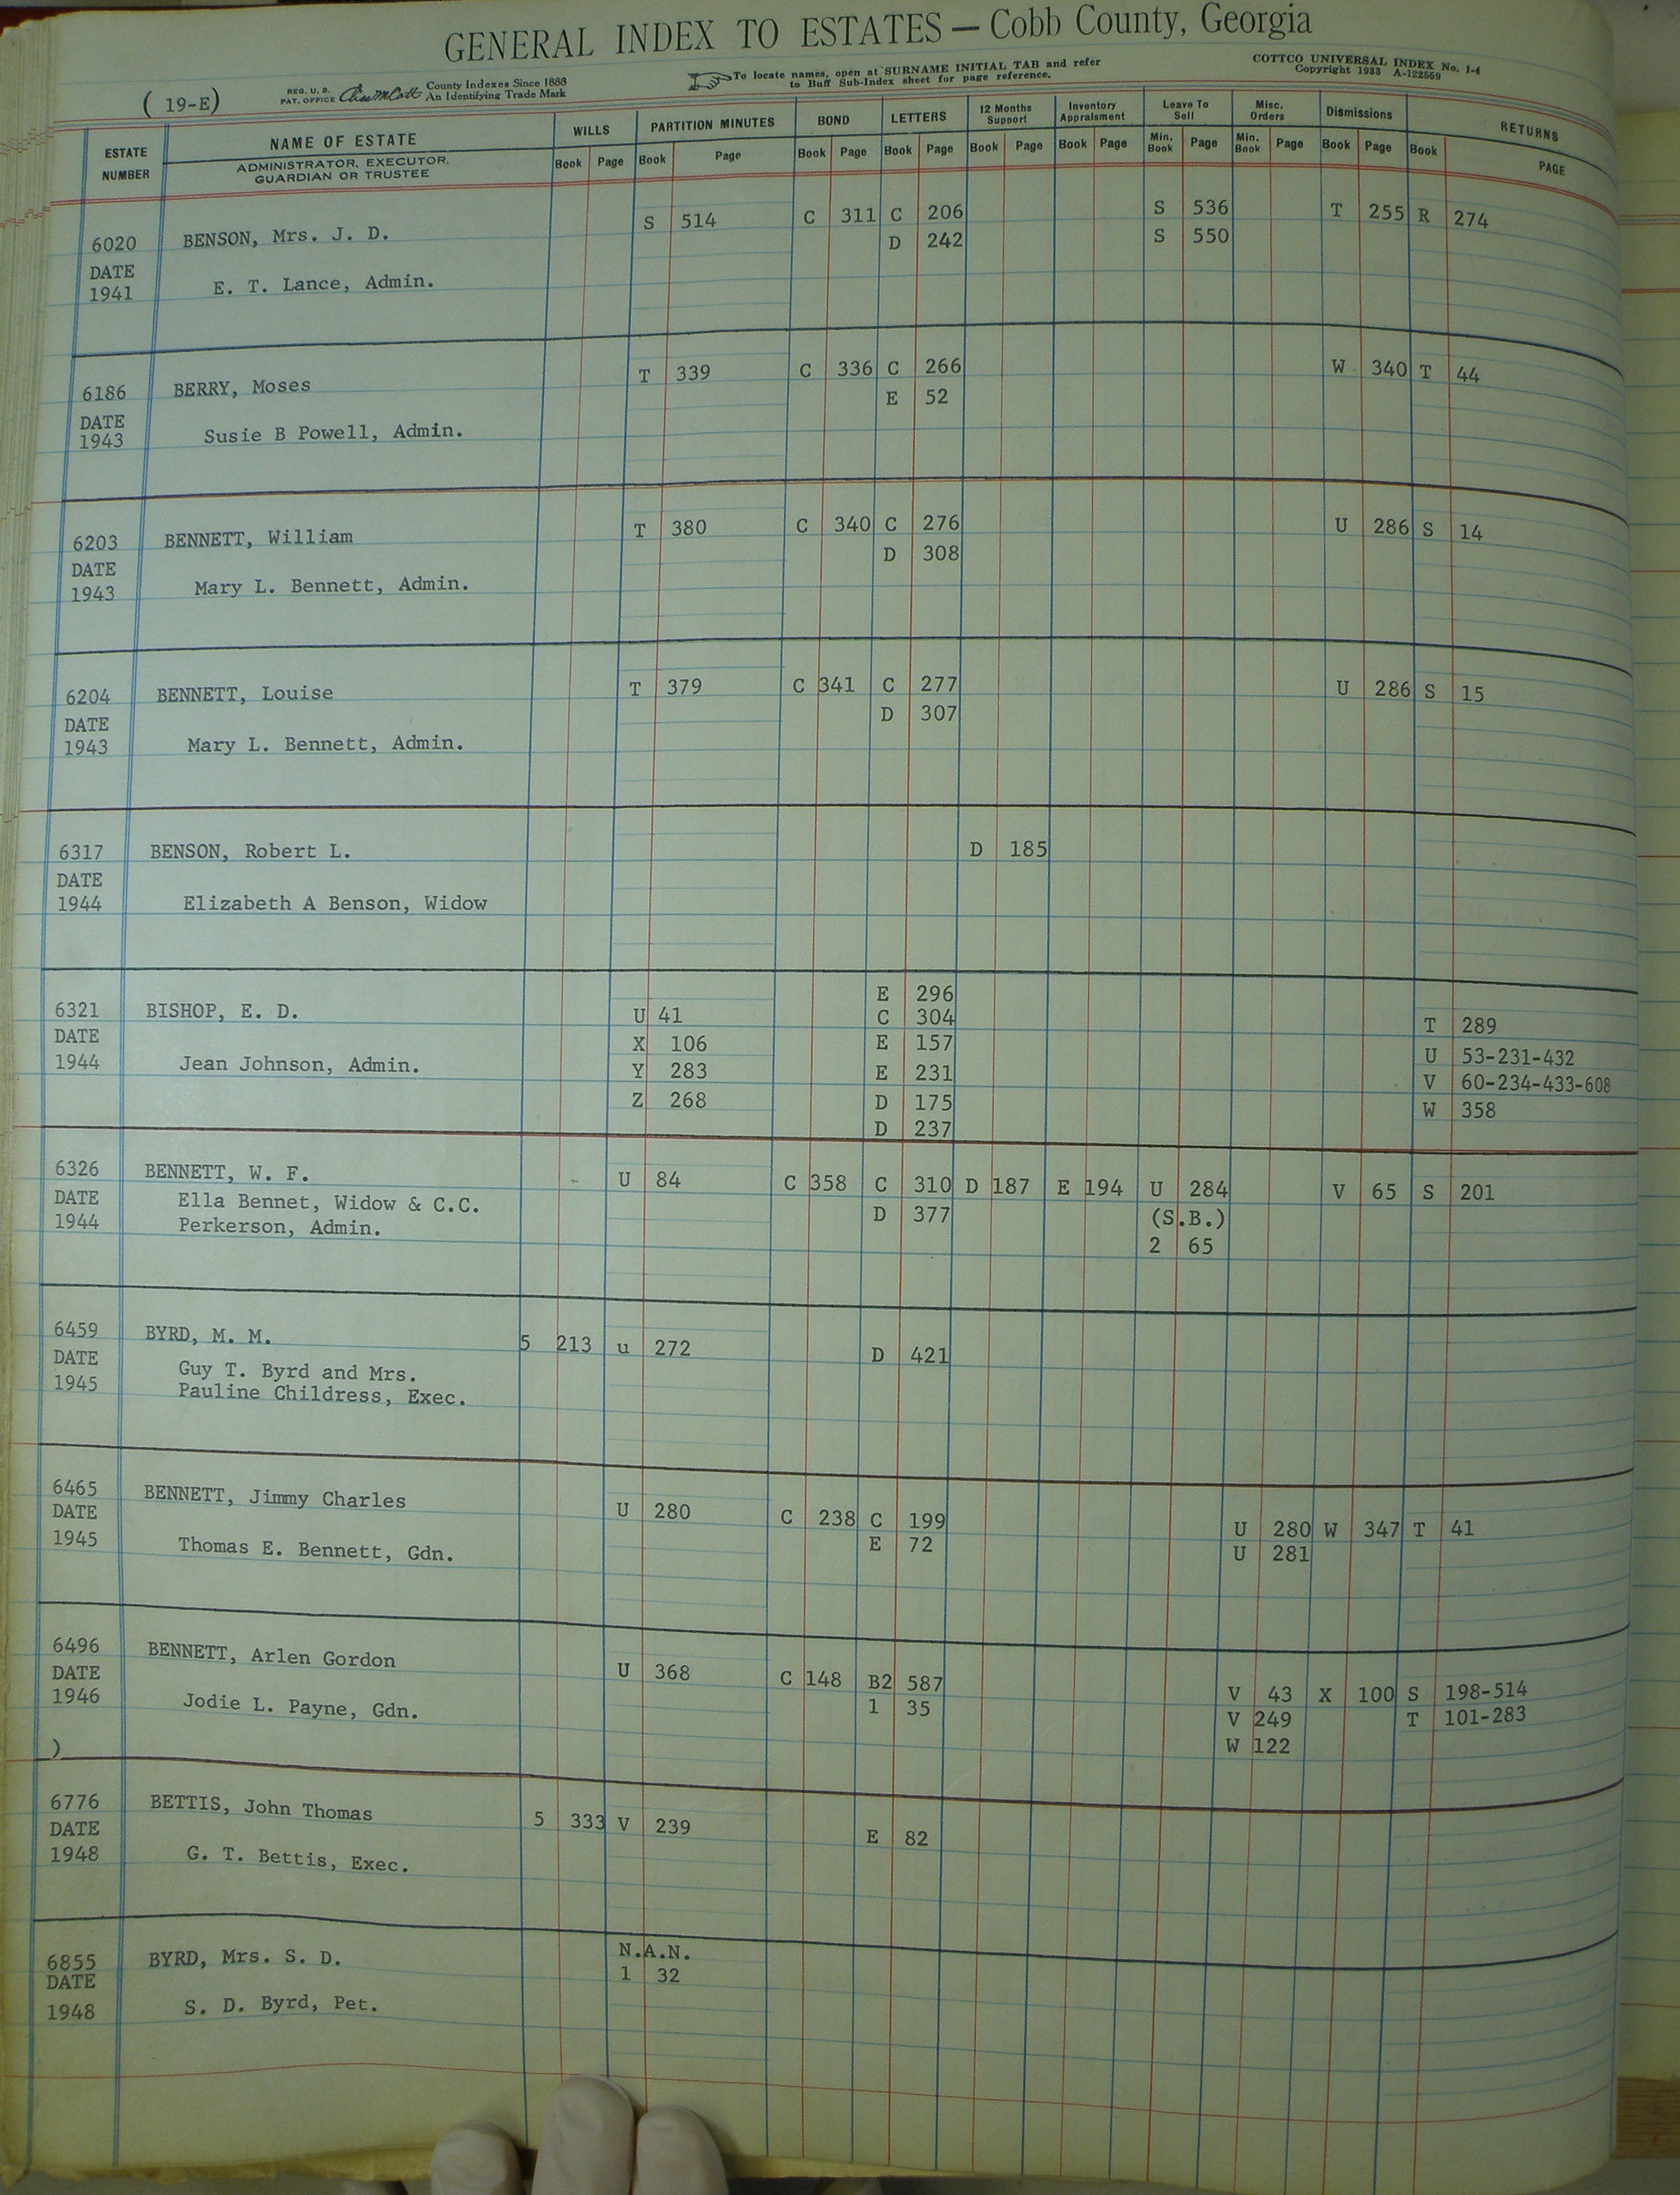 GENERAL INDEX TO ESTATES — Cobb County, Georgia
( 19-E)
REG. U. S. PAT. OFFICE
County Indexes Since 1888
An Identifying Trade Mark
To locate names, open at SURNAME INITIAL TAB and refer
to Buff Sub-Index sheet for page reference.
COTTCO UNIVERSAL INDEX No. 1-4
Copyright 1933 A-122559
ESTATE NUMBER NAME OF ESTATE WILLS PARTITION MINUTES BOND LETTERS 12 Months Support Inventory Appraisment Leave To Sell Misc. Orders Dismissions RETURNS
ADMINISTRATOR, EXECUTOR, GUARDIAN OR TRUSTEE Book Page Book Page Book Page Book Page Book Page Book Page Min. Book Page Min. Book Page Book Page Book PAGE
6020 BENSON, Mrs. J. D. S 514 C 311 C 206 S 536 T 255 R 274
D 242 S 550
DATE
1941 E. T. Lance, Admin.
6186 BERRY, Moses T 339 C 336 C 266 W 340 T 44
E 52
DATE
1943 Susie B Powell, Admin.
6203 BENNETT, William T 380 C 340 C 276 U 286 S 14
D 308
DATE
1943 Mary L. Bennett, Admin.
6204 BENNETT, Louise T 379 C 341 C 277 U 286 S 15
D 307
DATE
1943 Mary L. Bennett, Admin.
6317 BENSON, Robert L. D 185
DATE
1944 Elizabeth A Benson, Widow
E 296
6321 BISHOP, E. D. U 41 C 304 T 289
DATE X 106 E 157 U 53-231-432
1944 Jean Johnson, Admin. Y 283 E 231 V 60-234-433-608
Z 268 D 175 W 358
D 237
6326 BENNETT, W. F. U 84 C 358 C 310 D 187 E 194 U 284 V 65 S 201
DATE Ella Bennet, Widow & C.C. D 377 (S.B.)
1944 Perkerson, Admin. 2 65
6459 BYRD, M. M. 5 213 u 272 D 421
DATE Guy T. Byrd and Mrs.
1945 Pauline Childress, Exec.
6465 BENNETT, Jimmy Charles U 280 C 238 C 199 U 280 W 347 T 41
DATE E 72 U 281
1945 Thomas E. Bennett, Gdn.
6496 BENNETT, Arlen Gordon U 368 C 148 B2 587 V 43 X 100 S 198-514
DATE 1 35 V 249 T 101-283
1946 Jodie L. Payne, Gdn. W 122
)
6776 BETTIS, John Thomas 5 333 V 239 E 82
DATE
1948 G. T. Bettis, Exec.
6855 BYRD, Mrs. S. D. N.A.N.
DATE 1 32
1948 S. D. Byrd, Pet.